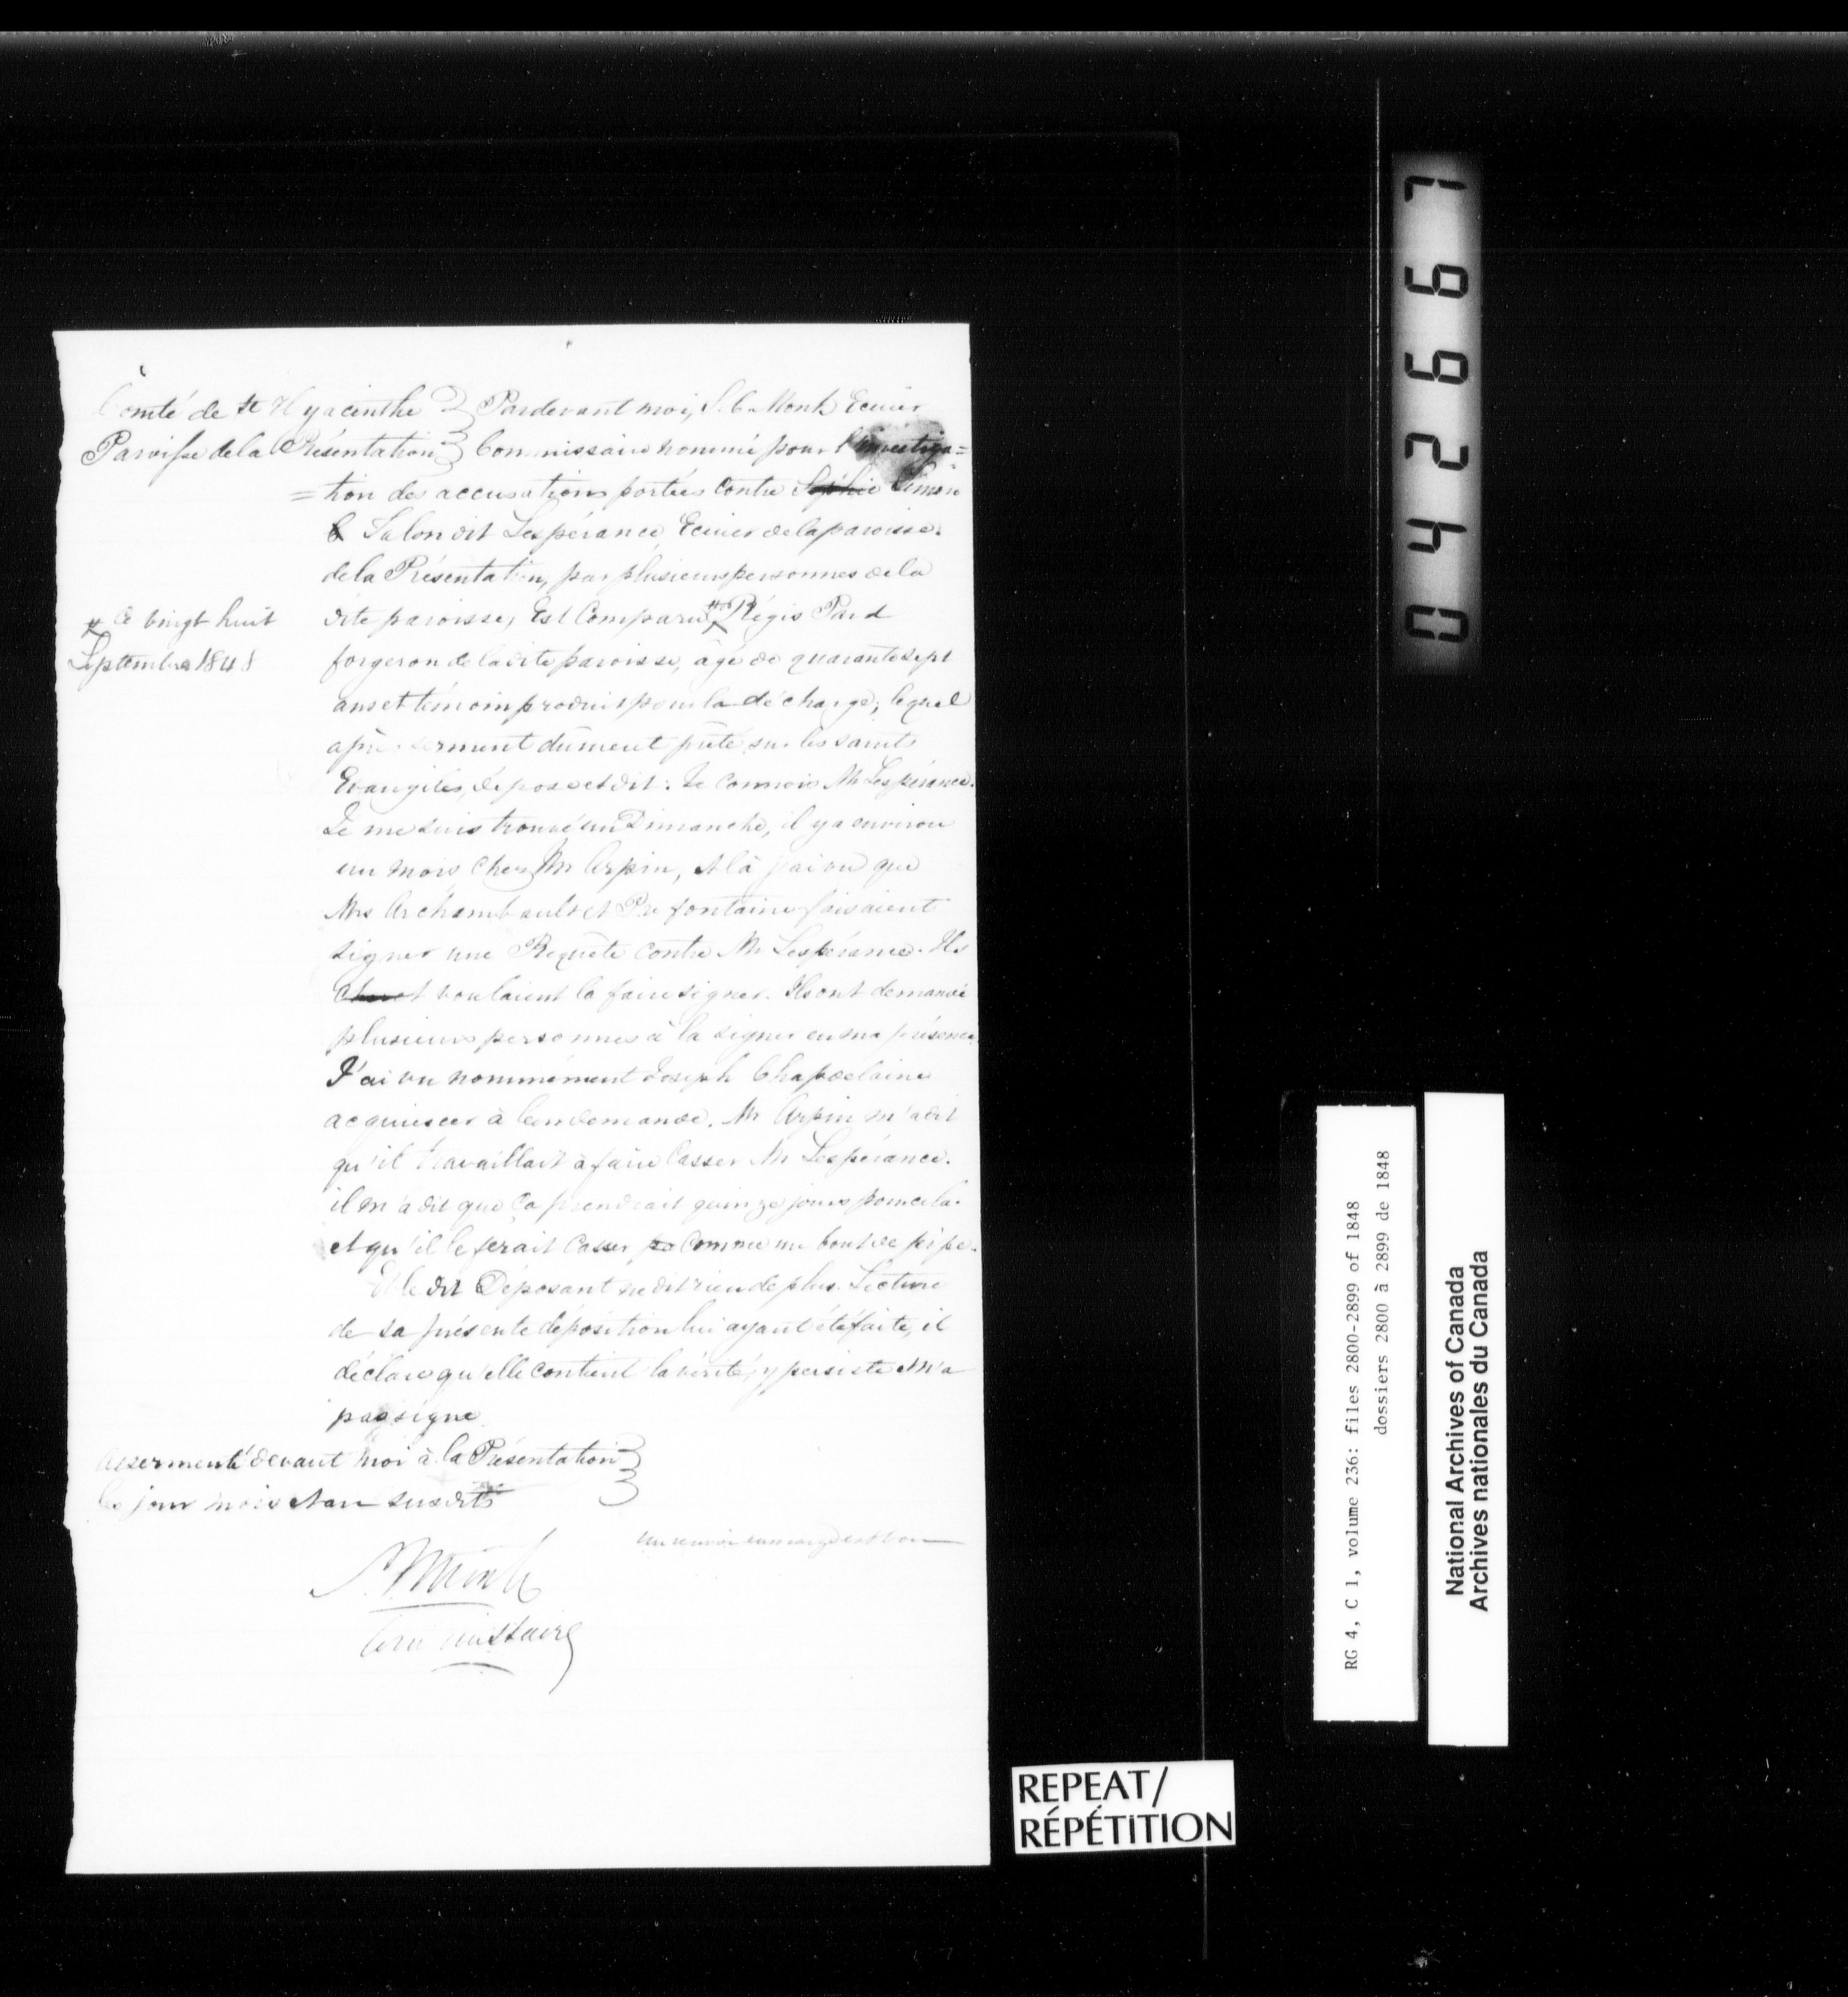 Comté de St Hyacinthe } Pardevant moi, S. C. Monk Ecuier
Paroisse de la Présentation } Commissaire nommé pour l'investiga=
=tion des accusations portées contre Sophie Simon
Salon dit Lespérance, Ecuier de la paroisse
de la Présentation, par plusieurs personnes de la
dite paroisse, Est Comparu # Régis Paré
# Ce vingt huit
Septembre 1848
forgeron de la dite paroisse, agé de quarante sept
ans et témoin produit pour la décharge, lequel
après serment dûment prêté sur les saints
Evangiles, dépose et dit: Je connois Mr Lespérance.
Je me suis trouvé un Dimanche, il y a environ
un mois chez Mr Arpin, et là j'ai vu que
Mrs Archambault et Préfontaine faisaient
signer une Requête contre Mr Lespérance. Ils
voulaient la faire signer. Ils ont demandé
plusieurs personnes à la signer en ma présence
J'ai vu nommément Joseph Chapdelaine
acquiescer à leur demande. Mr Arpin m'a dit
qu'il travaillait à faire Casser Mr Lespérance.
il m'a dit que ça prendrait quinze jours pour cela.
et qu'il le ferait Casser po comme un bout de pipe.
Et le dit Déposant ne dit rien de plus. Lecture
de sa présente déposition lui ayant été faite, il
déclare qu'elle contient la vérité, y persiste et n'a
pas signé
assermenté devant moi à la Présentation }
les jour mois et an susdits }
un renvoi en marge est bon
S. C. Monk
Commissaire
0 4 2 6 6 7
RG 4, C 1, volume 236: files 2800-2899 of 1848
dossiers 2800 à 2899 de 1848
National Archives of Canada
Archives nationales du Canada
REPEAT/
RÉPÉTITION